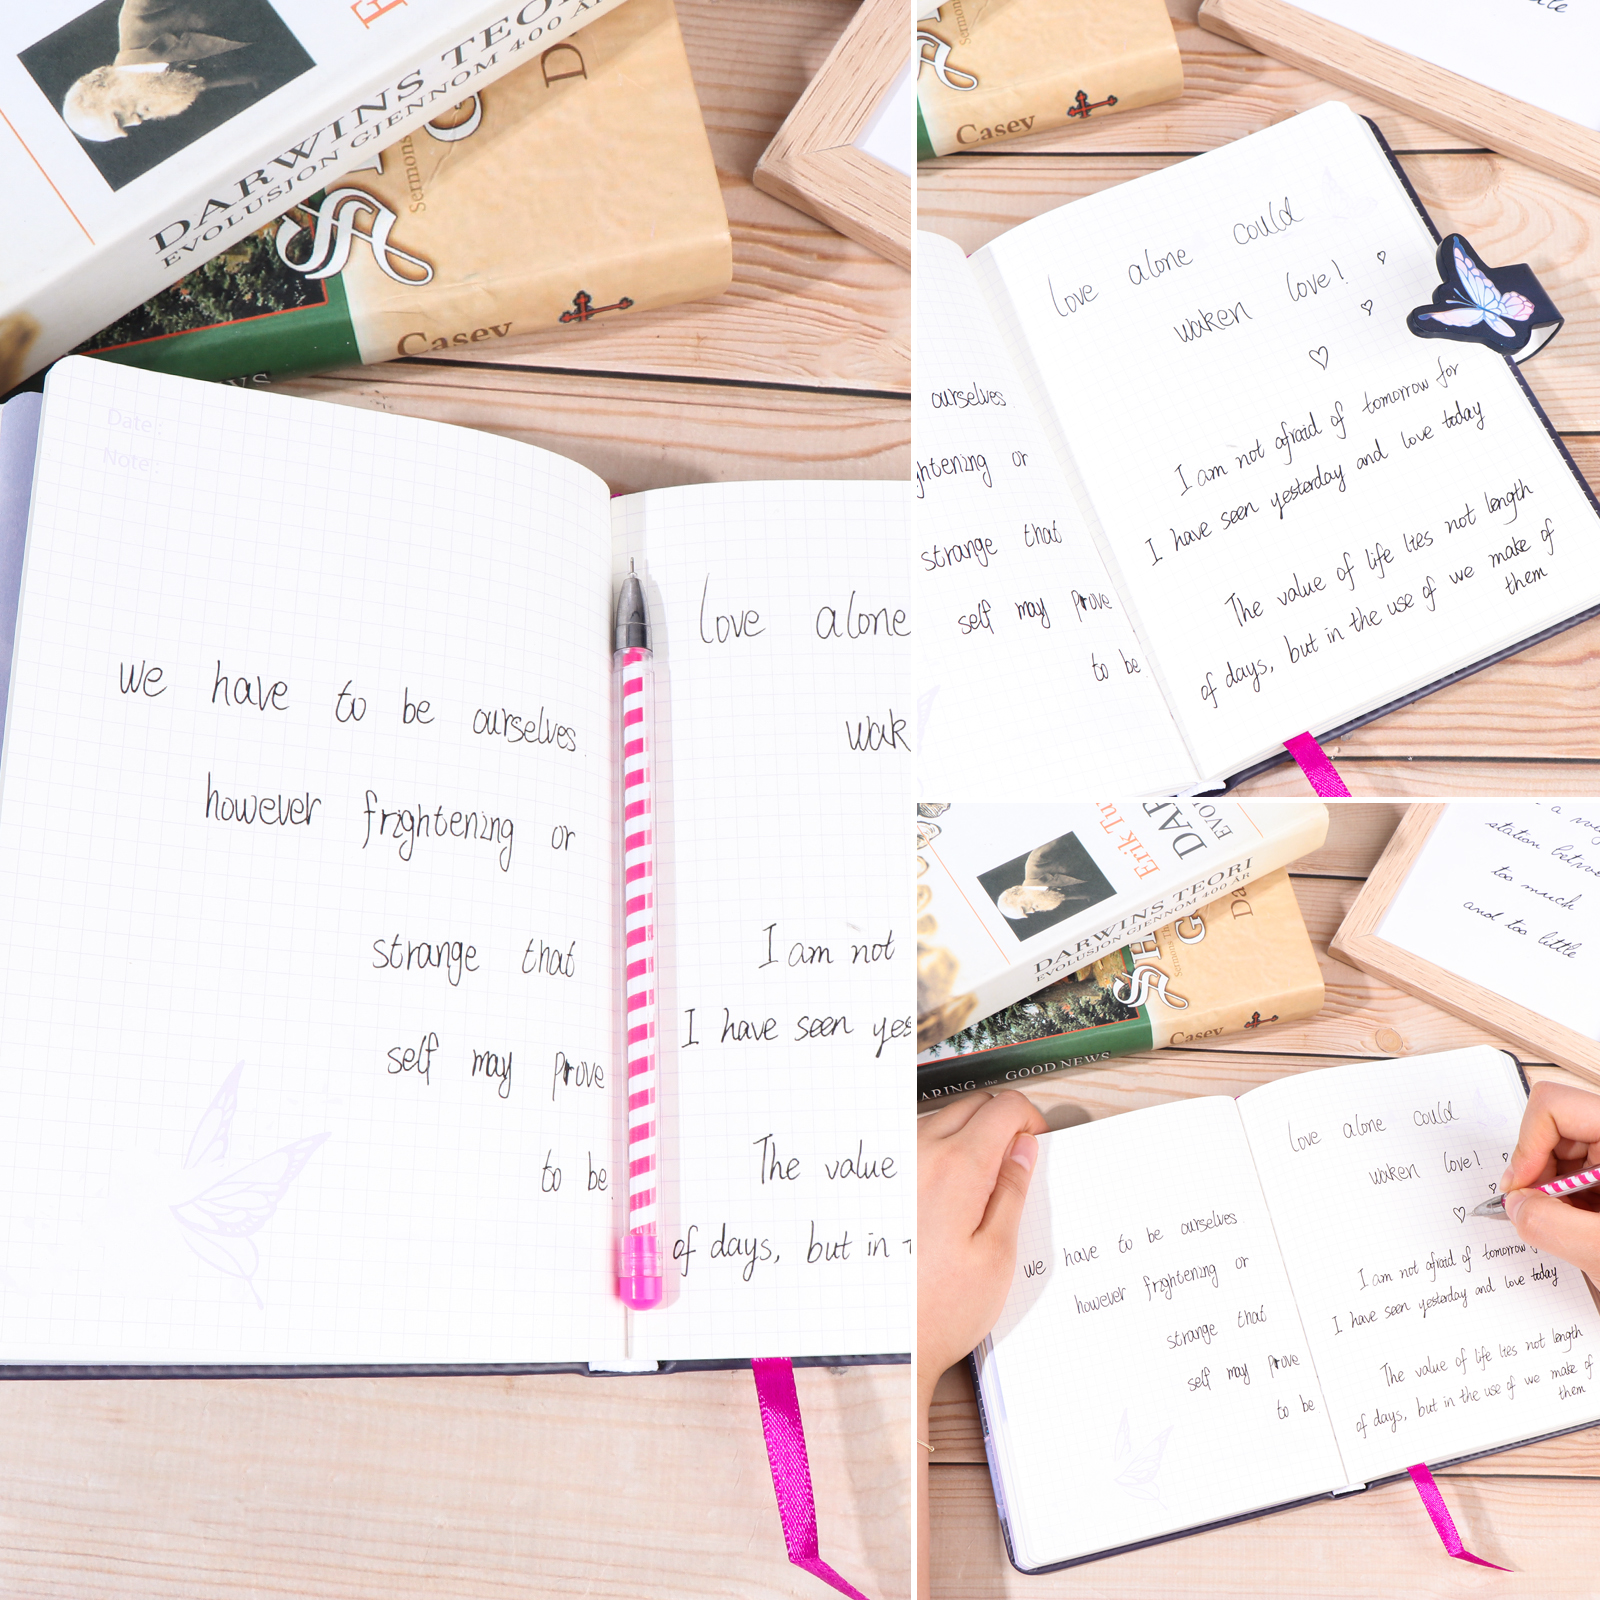 DARWINS TEORI
EVOLUSJON GJENNOM 400 ÅR
Sermons
Casey
Date:
Note:
we have to be ourselves
however frightening or
strange that
self may prove
to be
love alone
wak
I am not
I have seen yes
The value
of days, but in
Sermons
Casey
love alone could
waken love!
I am not afraid of tomorrow for
I have seen yesterday and love today
The value of life lies not length
of days, but in the use of we make of
them
ourselves
ghtening or
strange that
self may prove
to be
Erik Tu
DAR
EVO
DARWINS TEORI
EVOLUSJON GJENNOM 400 ÅR
Casey
ARING the GOOD NEWS
station betwe
too much
and too little
love alone could
waken love!
we have to be ourselves
however frightening or
strange that
self may prove
to be
I am not afraid of tomorrow
I have seen yesterday and love today
The value of life lies not length
of days, but in the use of we make of
them